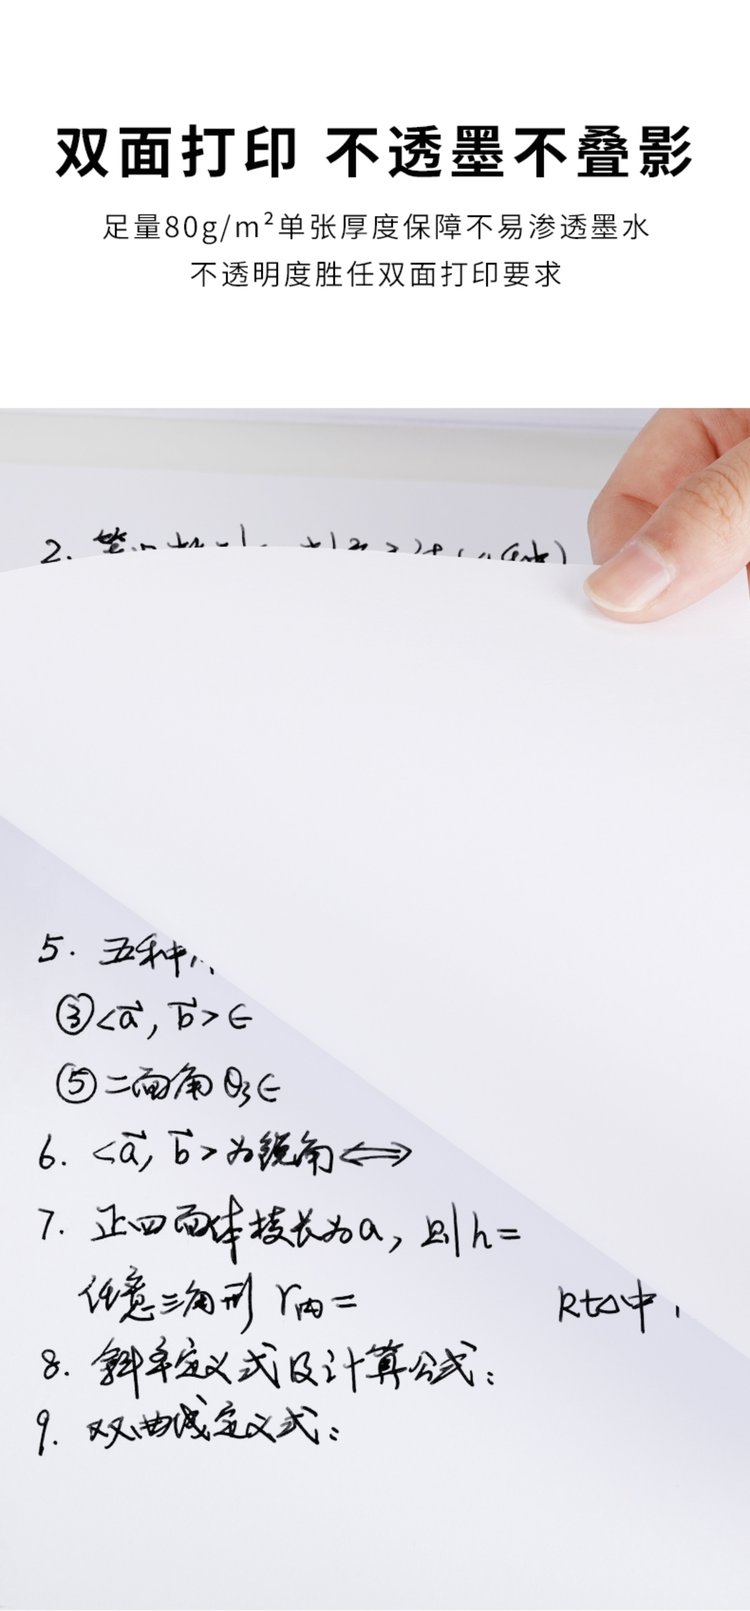 双面打印 不透墨不叠影
足量80g/m²单张厚度保障不易渗透墨水
不透明度胜任双面打印要求
2.
5. 五种
③<a⃗, b⃗>∈
⑤二面角θ₃∈
6. <a⃗, b⃗>为锐角⟺
7. 正四面体棱长为a, 则h=
任意三角形 r内= Rt△中
8. 斜率定义式及计算公式:
9. 双曲线定义式: